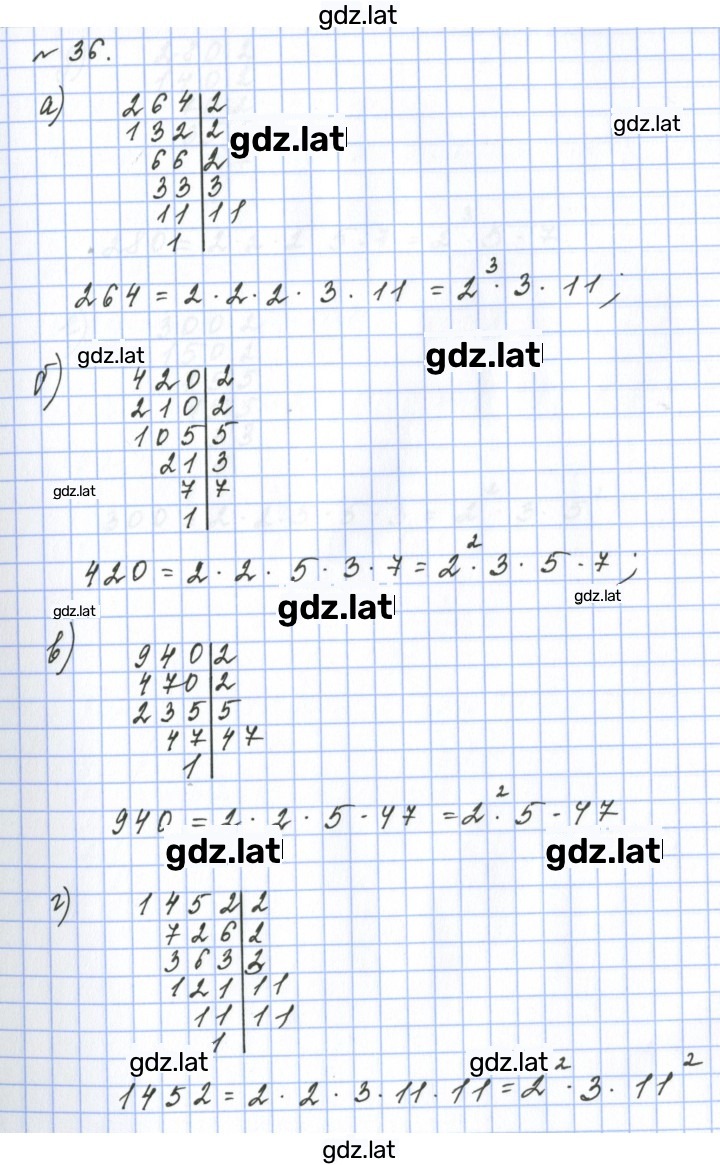 gdz.lat
№ 36.
а) 264|2
132|2 gdz.lat gdz.lat
66|2
33|3
11|11
1|
264 = 2 · 2 · 2 · 3 · 11 = 2³ · 3 · 11;
gdz.lat gdz.lat
б) 420|2
210|2
105|5
21|3
gdz.lat 7|7
1|
420 = 2 · 2 · 5 · 3 · 7 = 2² · 3 · 5 · 7;
gdz.lat gdz.lat gdz.lat
в) 940|2
470|2
235|5
47|47
1|
940 = 2 · 2 · 5 · 47 = 2² · 5 · 47
gdz.lat gdz.lat
г) 1452|2
726|2
363|3
121|11
11|11
1|
gdz.lat gdz.lat
1452 = 2 · 2 · 3 · 11 · 11 = 2² · 3 · 11²
gdz.lat